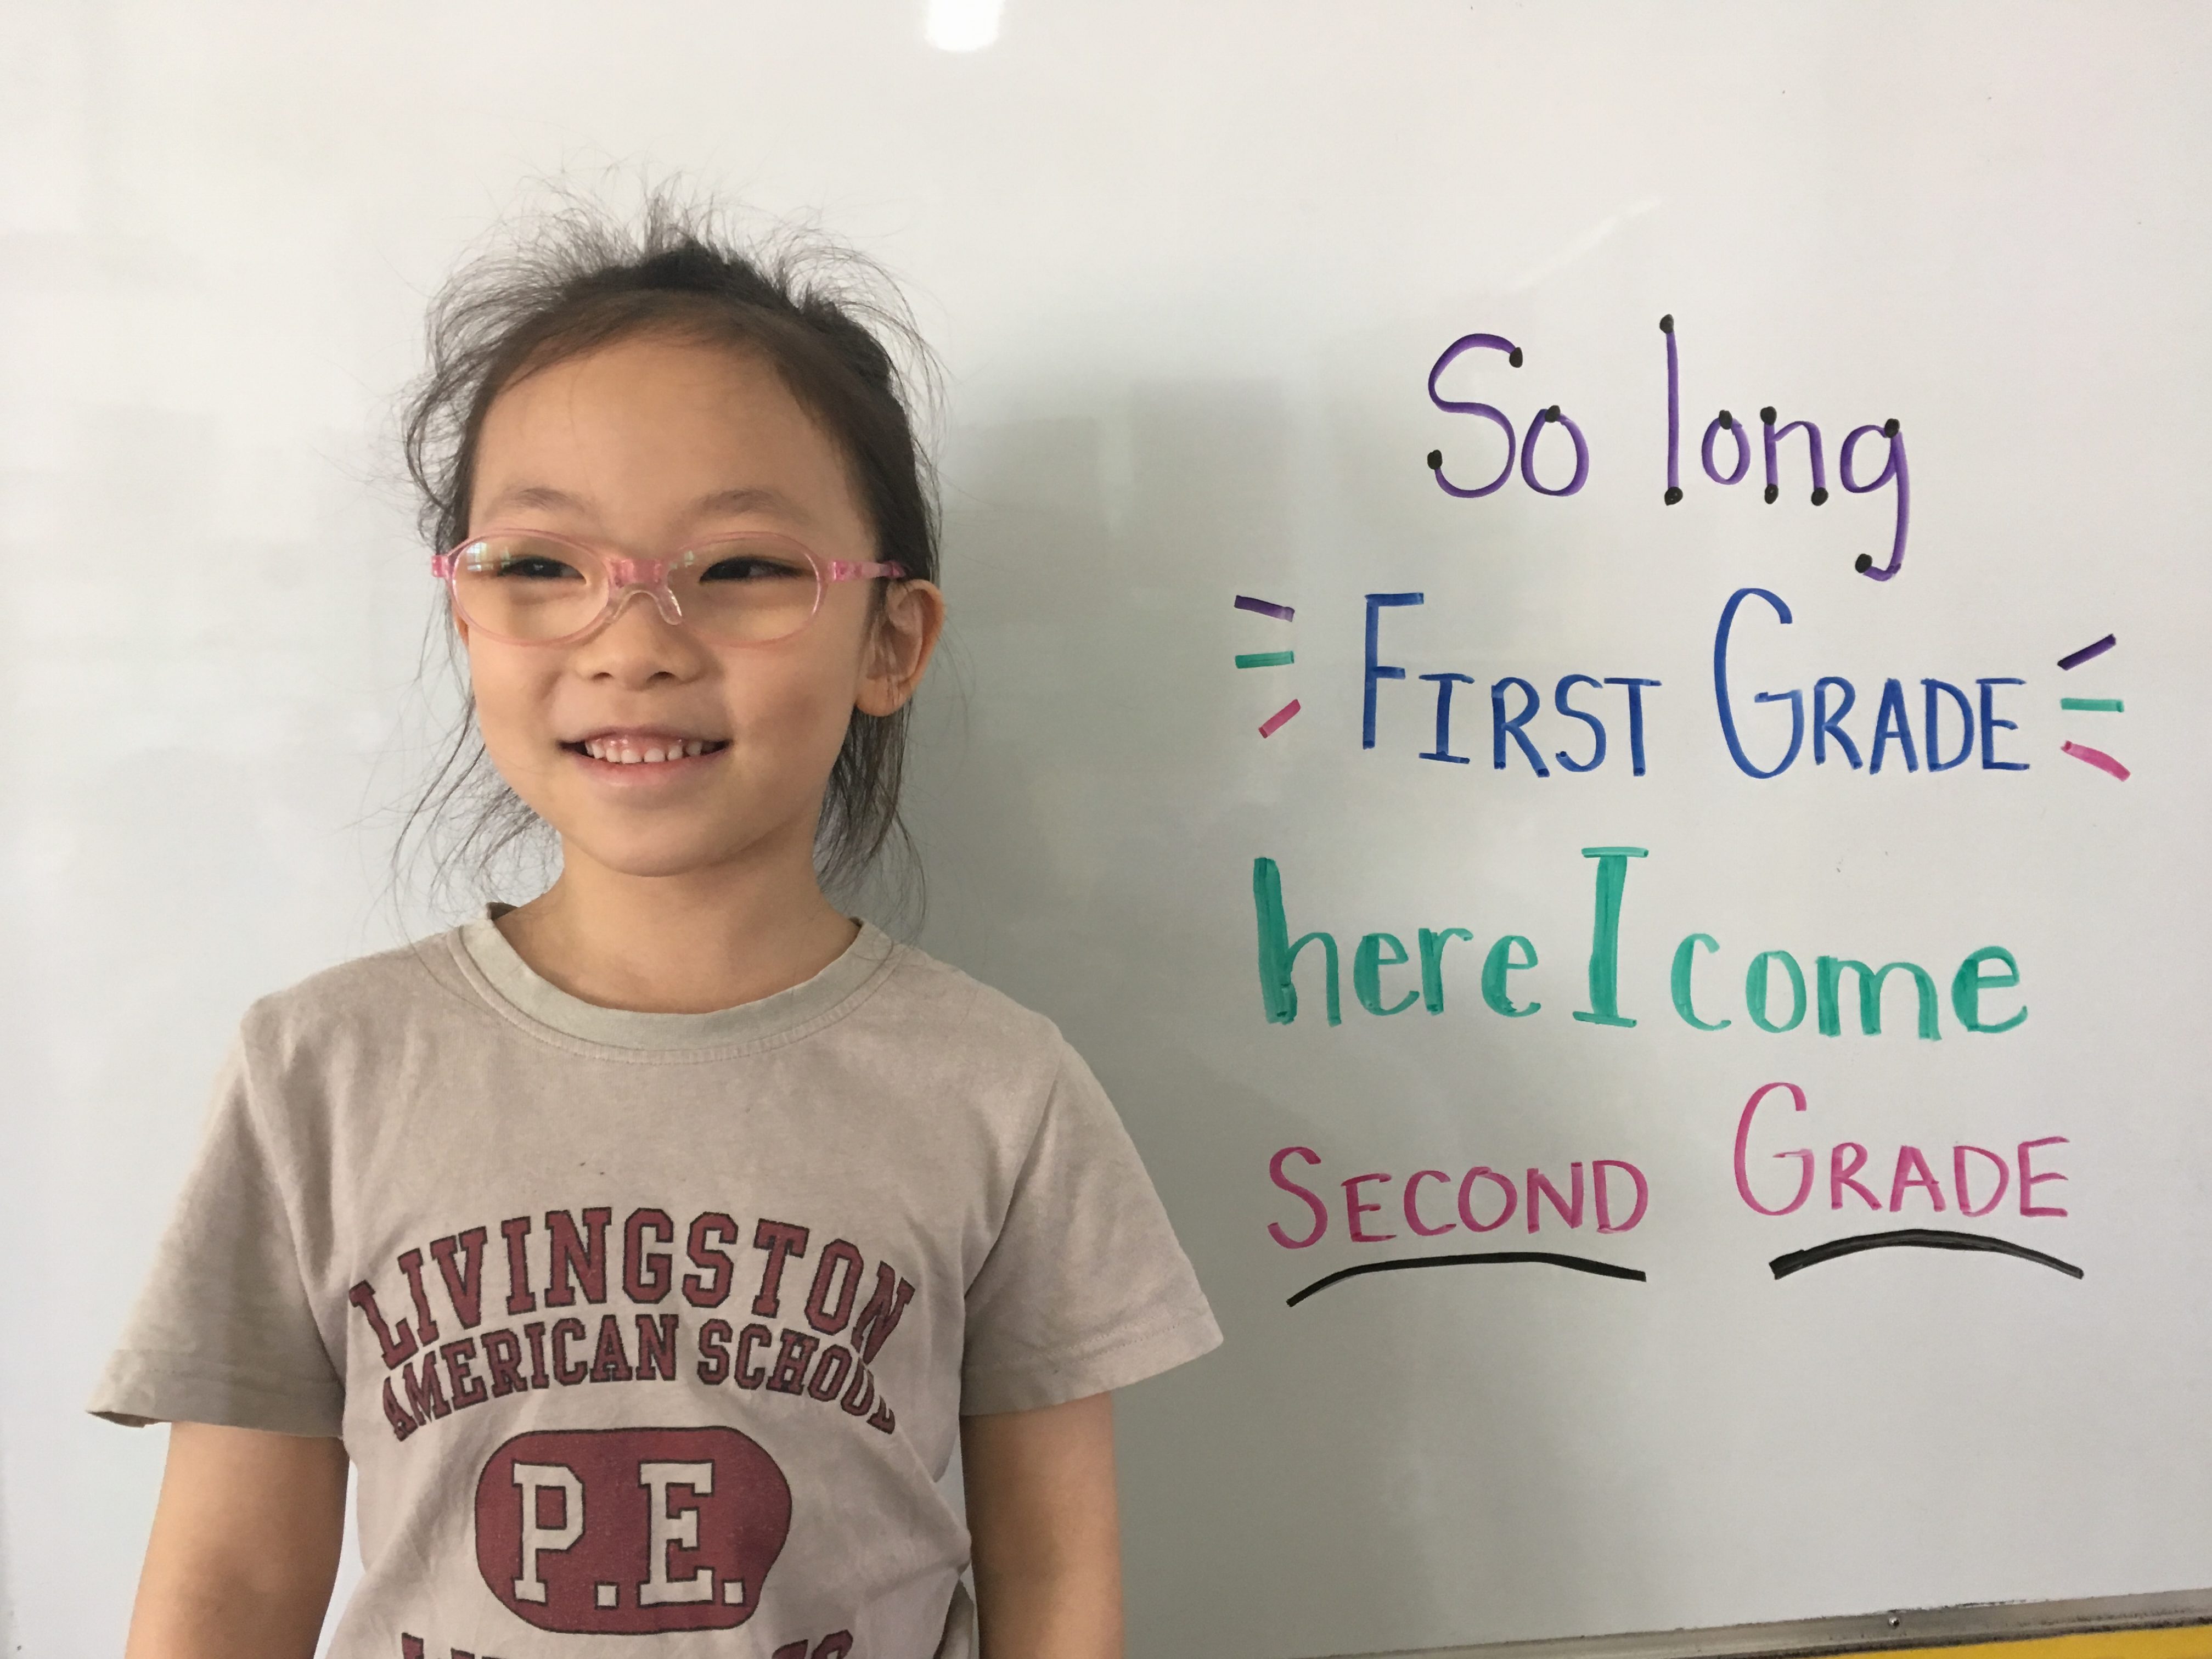 So long
FIRST GRADE
here I come
SECOND GRADE
LIVINGSTON
AMERICAN SCHOOL
P.E.